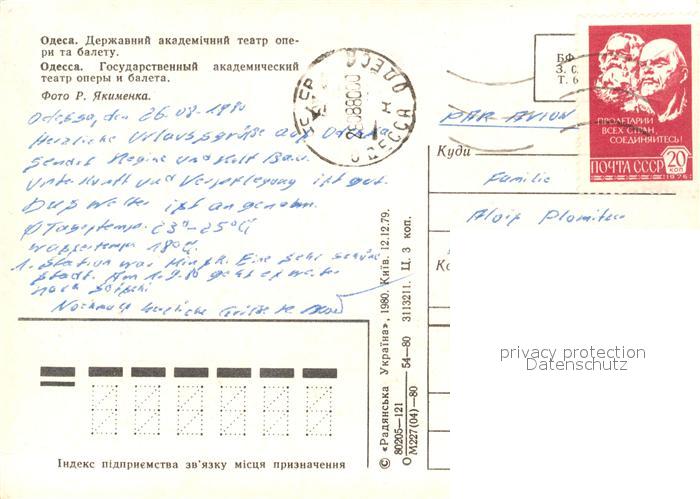 Одеса. Державний академічний театр опе-
ри та балету.
Одесса. Государственный академический
театр оперы и балета.
Фото Р. Якименка.
Odessa, den 26.08.1980
Herzliche Urlaubsgrüße aus Odessa
sendet Regine und Kurt
Unterkunft und Verpflegung ist gut.
Das Wetter ist angenehm.
Ø Tagestemp. 23°-25°C
Wassertemp. 18°C.
1. Station war Minsk. Eine sehr schöne
Stadt. Am 1.9.80 geht es weiter
nach
Nochmals herzliche Grüße
ОДЕССА
БФ
З. С
Т. 6
ПРОЛЕТАРИИ
ВСЕХ СТРАН,
СОЕДИНЯЙТЕСЬ!
ПОЧТА СССР 20 КОП
1976
PAR AVION
Куди
Familie
Alois
Ко
© «Радянська Україна», 1980. Київ. 12.12.79.
80205—121 54—80 3113211. Ц. 3 коп.
О М227(04)—80
privacy protection
Datenschutz
Індекс підприємства зв'язку місця призначення